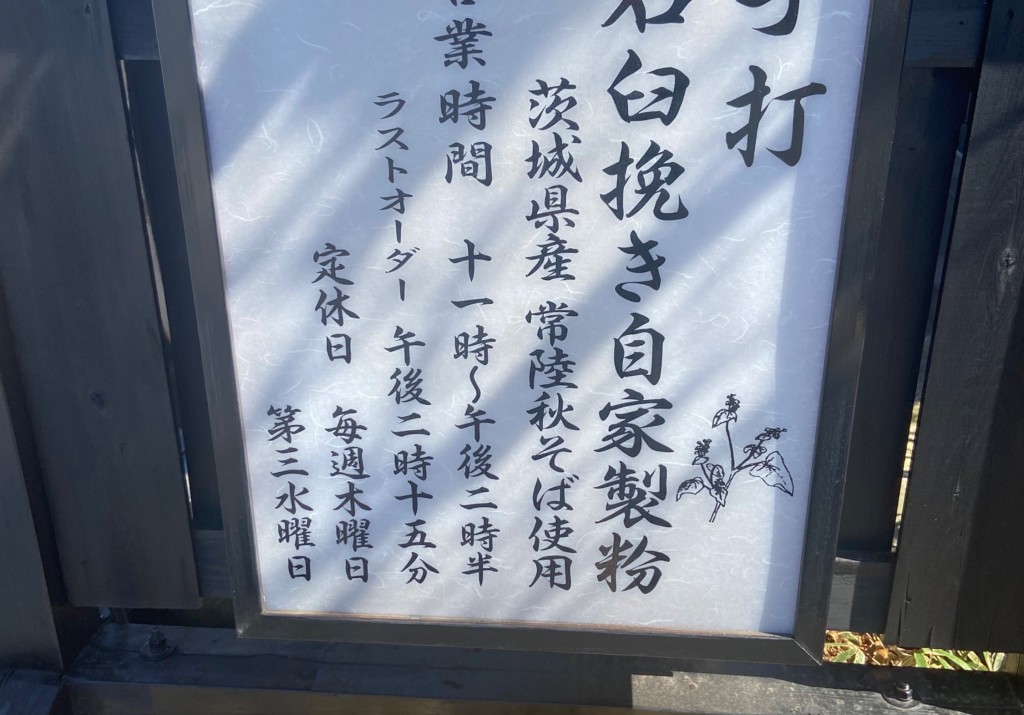 打
臼挽き自家製粉
茨城県産 常陸秋そば使用
業時間 十一時～午後二時半
ラストオーダー 午後二時十五分
定休日 毎週木曜日
第三水曜日